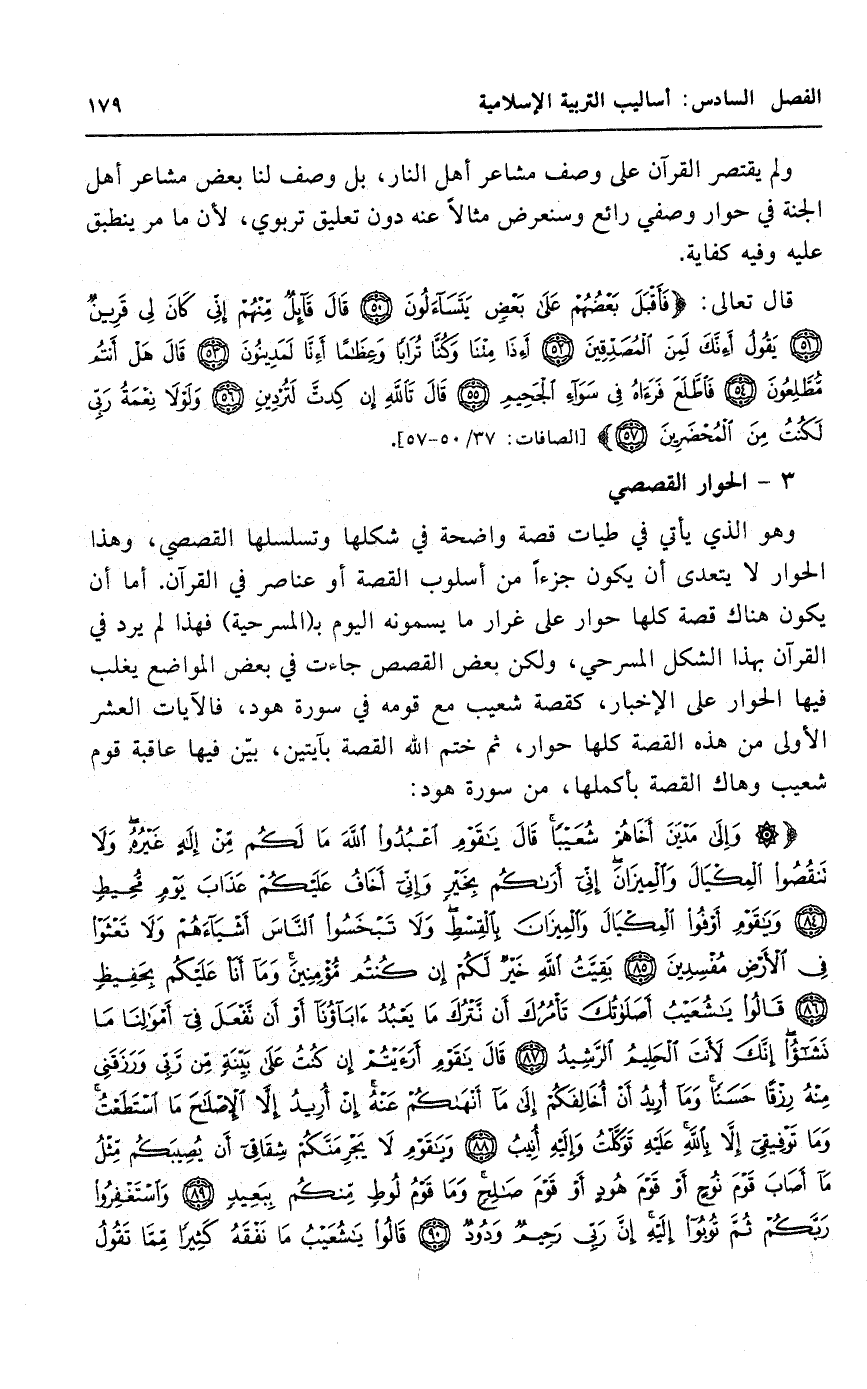 الفصل السادس: أساليب التربية الإسلامية ١٧٩
ولم يقتصر القرآن على وصف مشاعر أهل النار، بل وصف لنا بعض مشاعر أهل
الجنة في حوار وصفي رائع وسنعرض مثالاً عنه دون تعليق تربوي، لأن ما مر ينطبق
عليه وفيه كفاية.
قال تعالى: ﴿فَأَقْبَلَ بَعْضُهُمْ عَلَىٰ بَعْضٍ يَتَسَآءَلُونَ ۝٥٠ قَالَ قَآئِلٌ مِّنْهُمْ إِنِّى كَانَ لِى قَرِينٌ
۝٥١ يَقُولُ أَءِنَّكَ لَمِنَ ٱلْمُصَدِّقِينَ ۝٥٢ أَءِذَا مِتْنَا وَكُنَّا تُرَابًا وَعِظَٰمًا أَءِنَّا لَمَدِينُونَ ۝٥٣ قَالَ هَلْ أَنتُم
مُّطَّلِعُونَ ۝٥٤ فَٱطَّلَعَ فَرَءَاهُ فِى سَوَآءِ ٱلْجَحِيمِ ۝٥٥ قَالَ تَٱللَّهِ إِن كِدتَّ لَتُرْدِينِ ۝٥٦ وَلَوْلَا نِعْمَةُ رَبِّى
لَكُنتُ مِنَ ٱلْمُحْضَرِينَ ۝٥٧﴾ [الصافات: ٣٧/ ٥٠-٥٧].
٣ - الحوار القصصي
وهو الذي يأتي في طيات قصة واضحة في شكلها وتسلسلها القصصي، وهذا
الحوار لا يتعدى أن يكون جزءاً من أسلوب القصة أو عناصر في القرآن. أما أن
يكون هناك قصة كلها حوار على غرار ما يسمونه اليوم بـ(المسرحية) فهذا لم يرد في
القرآن بهذا الشكل المسرحي، ولكن بعض القصص جاءت في بعض المواضع يغلب
فيها الحوار على الإخبار، كقصة شعيب مع قومه في سورة هود، فالآيات العشر
الأولى من هذه القصة كلها حوار، ثم ختم الله القصة بآيتين، بيّن فيها عاقبة قوم
شعيب وهاك القصة بأكملها، من سورة هود:
﴿۞ وَإِلَىٰ مَدْيَنَ أَخَاهُمْ شُعَيْبًا ۚ قَالَ يَٰقَوْمِ ٱعْبُدُوا۟ ٱللَّهَ مَا لَكُم مِّنْ إِلَٰهٍ غَيْرُهُۥ ۖ وَلَا
تَنقُصُوا۟ ٱلْمِكْيَالَ وَٱلْمِيزَانَ ۖ إِنِّىٓ أَرَىٰكُم بِخَيْرٍ وَإِنِّىٓ أَخَافُ عَلَيْكُمْ عَذَابَ يَوْمٍ مُّحِيطٍ
۝٨٤ وَيَٰقَوْمِ أَوْفُوا۟ ٱلْمِكْيَالَ وَٱلْمِيزَانَ بِٱلْقِسْطِ ۖ وَلَا تَبْخَسُوا۟ ٱلنَّاسَ أَشْيَآءَهُمْ وَلَا تَعْثَوْا۟
فِى ٱلْأَرْضِ مُفْسِدِينَ ۝٨٥ بَقِيَّتُ ٱللَّهِ خَيْرٌ لَّكُمْ إِن كُنتُم مُّؤْمِنِينَ ۚ وَمَآ أَنَا۠ عَلَيْكُم بِحَفِيظٍ
۝٨٦ قَالُوا۟ يَٰشُعَيْبُ أَصَلَوٰتُكَ تَأْمُرُكَ أَن نَّتْرُكَ مَا يَعْبُدُ ءَابَآؤُنَآ أَوْ أَن نَّفْعَلَ فِىٓ أَمْوَٰلِنَا مَا
نَشَٰٓؤُا۟ ۖ إِنَّكَ لَأَنتَ ٱلْحَلِيمُ ٱلرَّشِيدُ ۝٨٧ قَالَ يَٰقَوْمِ أَرَءَيْتُمْ إِن كُنتُ عَلَىٰ بَيِّنَةٍ مِّن رَّبِّى وَرَزَقَنِى
مِنْهُ رِزْقًا حَسَنًا ۚ وَمَآ أُرِيدُ أَنْ أُخَالِفَكُمْ إِلَىٰ مَآ أَنْهَىٰكُمْ عَنْهُ ۚ إِنْ أُرِيدُ إِلَّا ٱلْإِصْلَٰحَ مَا ٱسْتَطَعْتُ ۚ
وَمَا تَوْفِيقِىٓ إِلَّا بِٱللَّهِ ۚ عَلَيْهِ تَوَكَّلْتُ وَإِلَيْهِ أُنِيبُ ۝٨٨ وَيَٰقَوْمِ لَا يَجْرِمَنَّكُمْ شِقَاقِىٓ أَن يُصِيبَكُم مِّثْلُ
مَآ أَصَابَ قَوْمَ نُوحٍ أَوْ قَوْمَ هُودٍ أَوْ قَوْمَ صَٰلِحٍ ۚ وَمَا قَوْمُ لُوطٍ مِّنكُم بِبَعِيدٍ ۝٨٩ وَٱسْتَغْفِرُوا۟
رَبَّكُمْ ثُمَّ تُوبُوٓا۟ إِلَيْهِ ۚ إِنَّ رَبِّى رَحِيمٌ وَدُودٌ ۝٩٠ قَالُوا۟ يَٰشُعَيْبُ مَا نَفْقَهُ كَثِيرًا مِّمَّا تَقُولُ